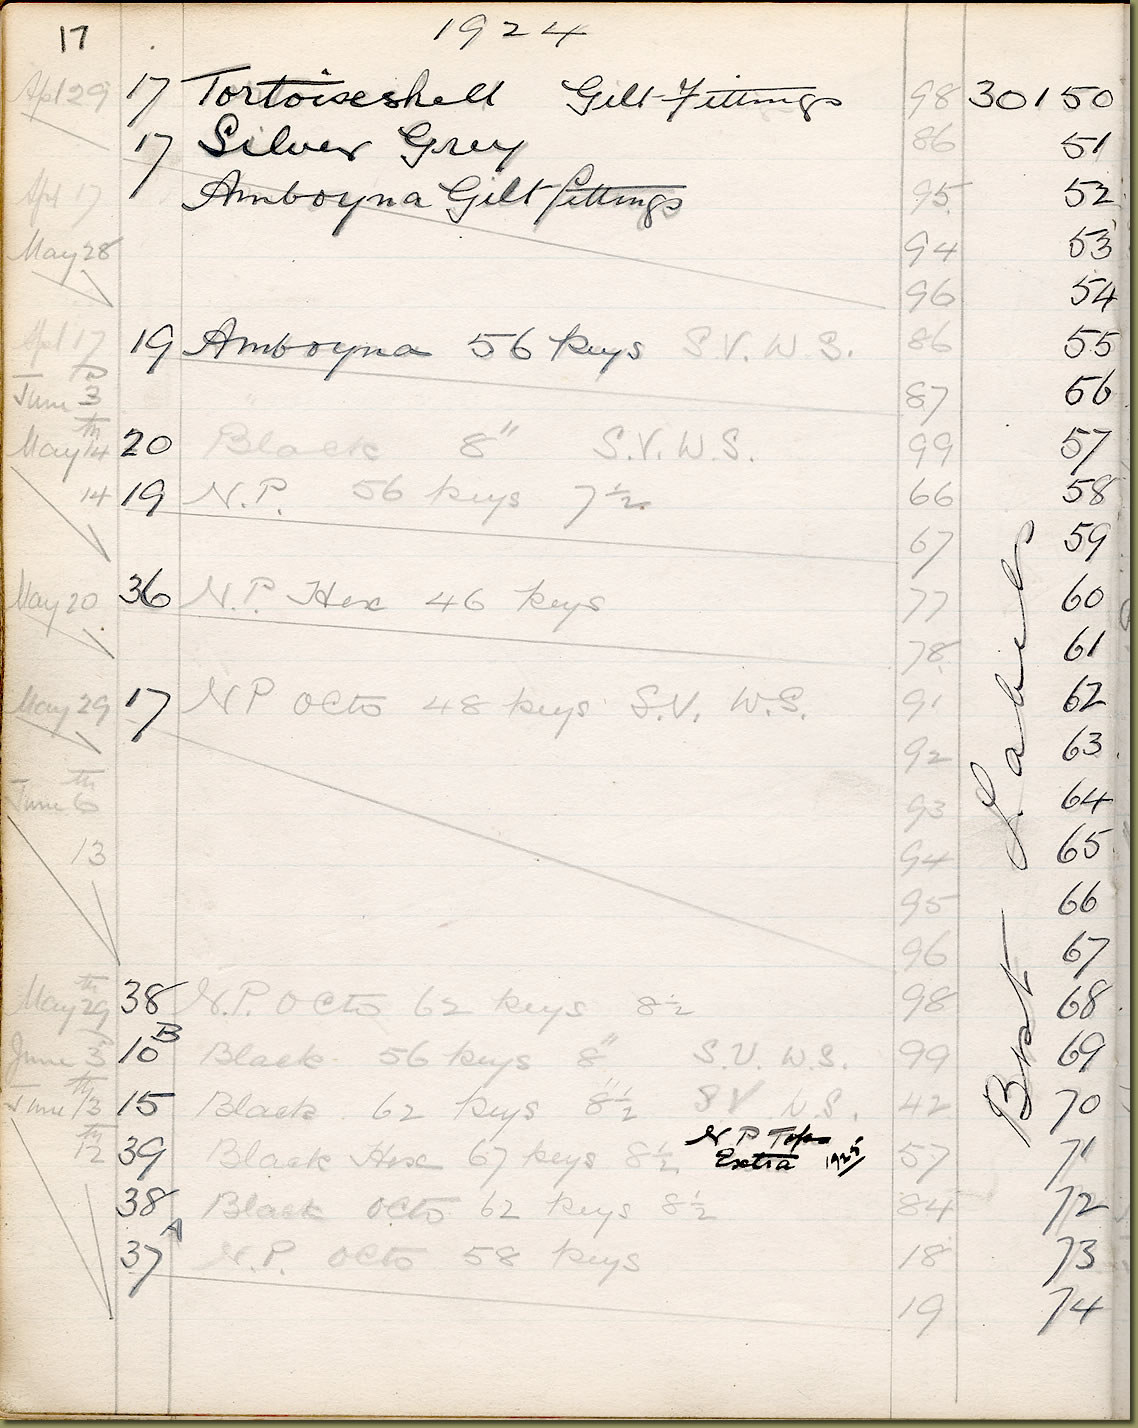 17 1924
Apl 29 17 Tortoiseshell Gilt Fittings 98 30150
17 Silver Grey 86 51
Apl 17 17 Amboyna Gilt fittings 95 52
May 28 94 53
96 54
Apl 17 19 Amboyna 56 keys S.V. W S. 86 55
June 3 87 56
May 14th 20 Black 8" S.V. W.S. 99 57
14 19 N.P. 56 keys 7½ 66 58
67 59
May 20 36 N.P. Hex 46 keys 77 60
78 61
May 29 17 NP Octo 48 keys S.V. W.S. 91 62
92 63
June 6th 93 64
13 94 65
95 66
96 67
May 29th 38 N.P. Octo 62 keys 8½ 98 68
June 3 10B Black 56 keys 8" S.V. W.S. 99 69
June 13th 15 Black 62 keys 8½" SV W.S. 42 70
12th 39 Black Hex 67 keys 8½ N P Tops Extra 57 71
38 Black Octo 62 keys 8½ 84 72
37A N.P. Octo 58 keys 18 73
19 74
Bpt Labels